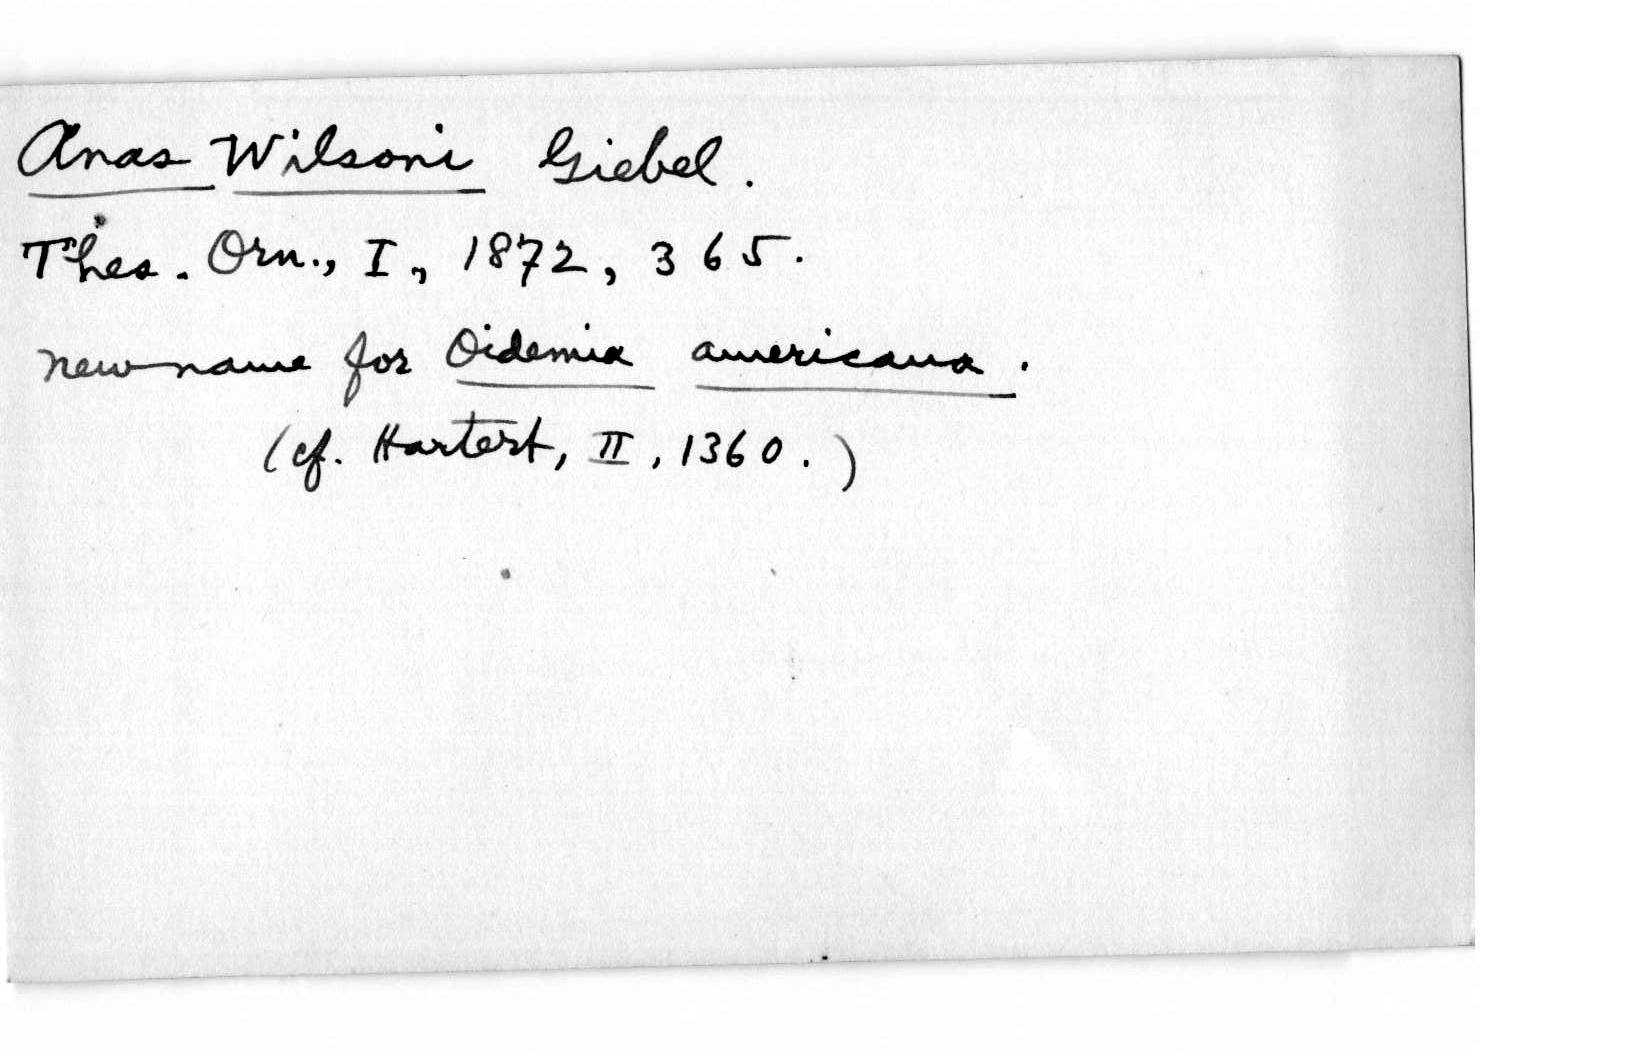 Anas Wilsoni Giebel.
Thes. Orn., I, 1872, 365.
new name for Oidemia americana.
(cf. Hartert, II, 1360.)